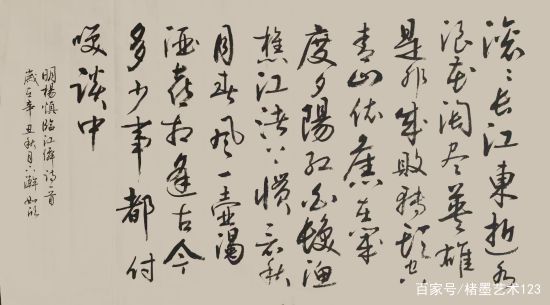 滚〻长江東逝水
浪花淘尽英雄
是非成败转头空
青山依舊在幾
度夕陽红白髮渔
樵江渚上惯看秋
月春风一壶濁
酒喜相逢古今
多少事都付
笑谈中
明楊慎临江僊诗一首
歲在辛丑秋月
百家号/楮墨艺术123